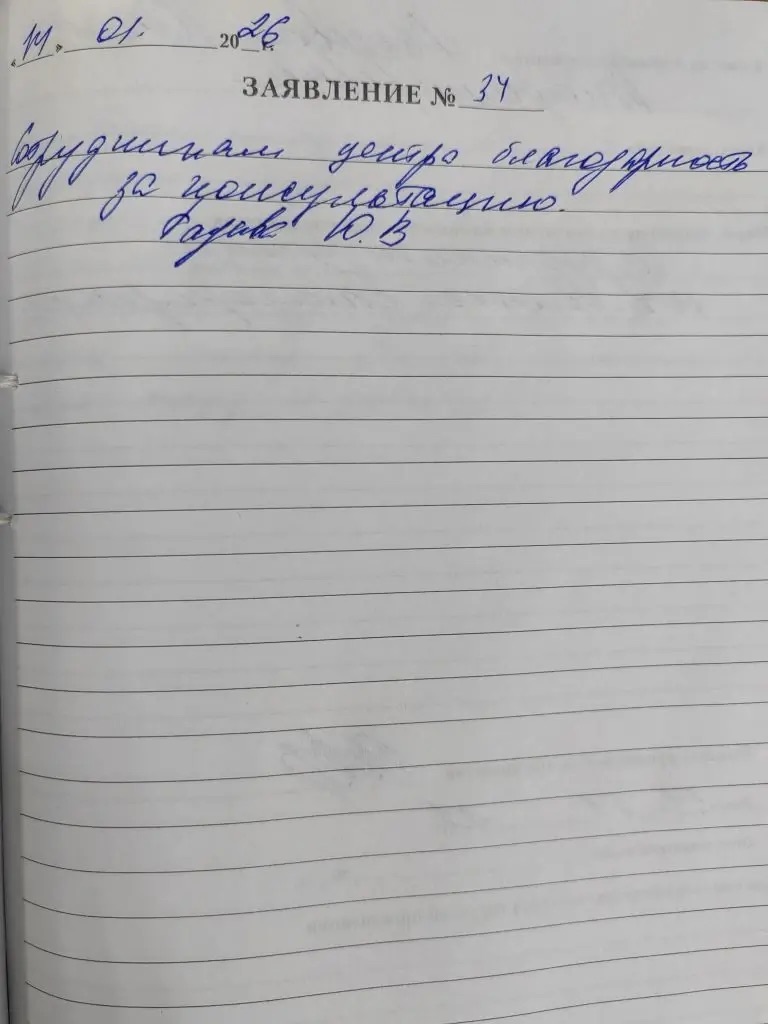 « 14 » 01. 2026 г.
ЗАЯВЛЕНИЕ № 34
Сотрудникам центра благодарность
за консультацию.
Ю.В